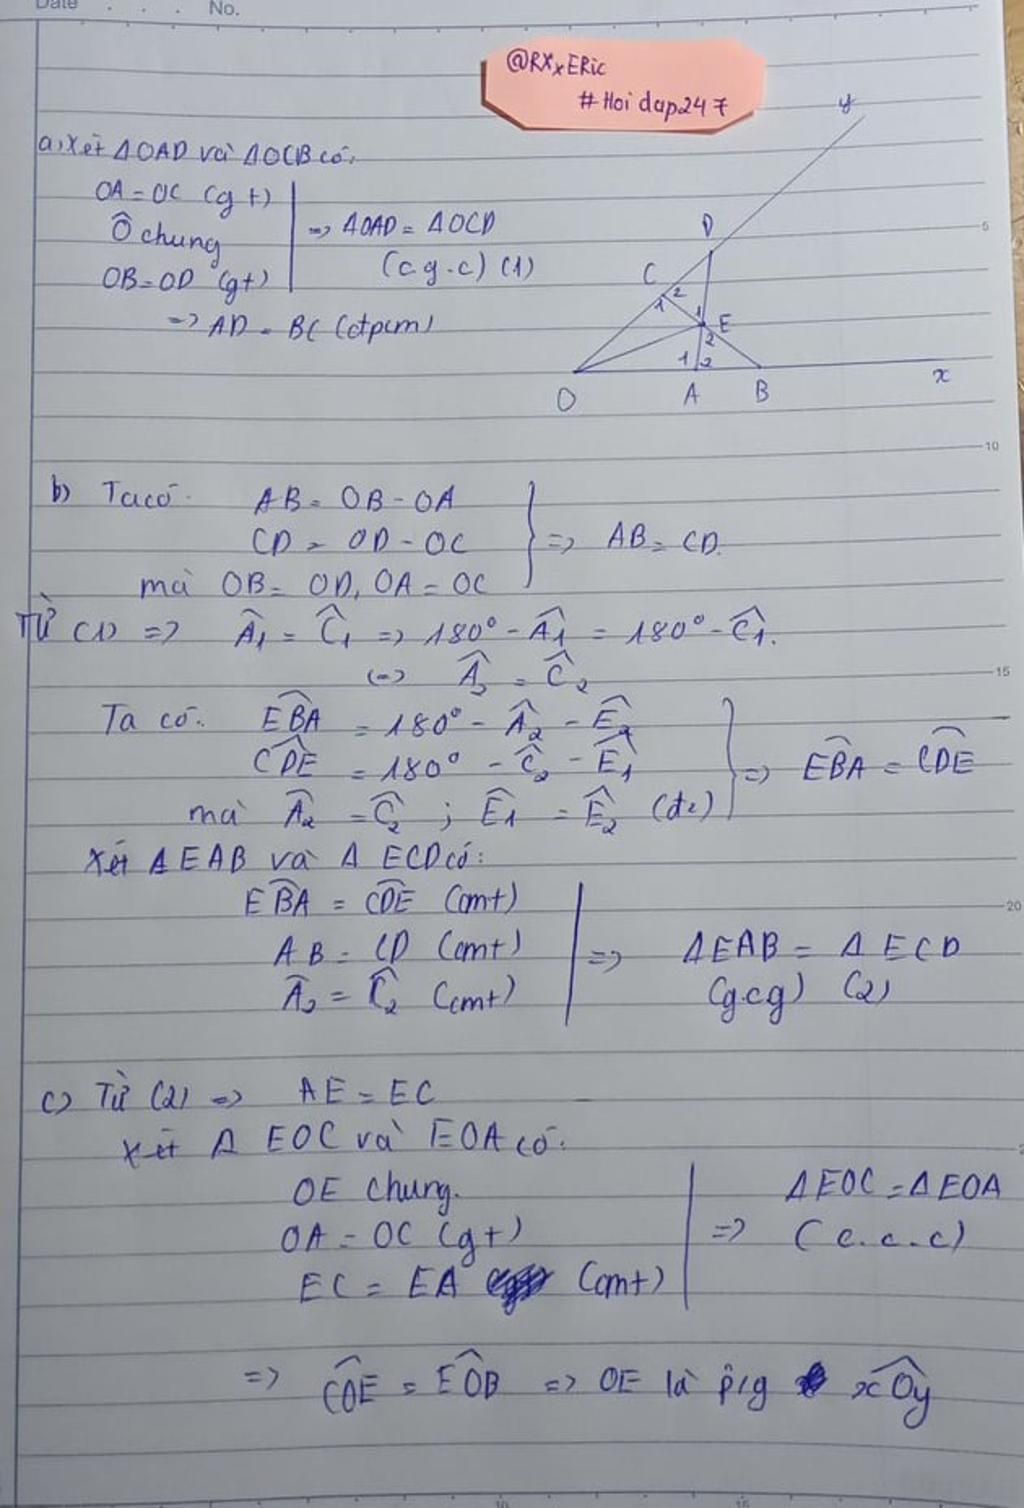 Date . . . No.
@RXxERic
#Hoidap247
a, Xét ΔOAD và ΔOCB có:
OA = OC (gt)
Ô chung
OB = OD (gt)
=> ΔOAD = ΔOCD
(c.g.c) (1)
=> AD = BC (đpcm)
y
D
C
2
1
1
E
2
1 2
O A B x
5
10
b) Ta có: AB = OB - OA
CD = OD - OC
mà OB = OD, OA = OC
=> AB = CD.
Từ (1) => Â₁ = Ĉ₁ => 180° - Â₁ = 180° - Ĉ₁.
(=> Â₂ = Ĉ₂
15
Ta có: EB̂A = 180° - Â₂ - Ê₂
CD̂E = 180° - Ĉ₂ - Ê₁
mà Â₂ = Ĉ₂ ; Ê₁ = Ê₂ (đ₂)
=> EB̂A = CD̂E
Xét ΔEAB và Δ ECD có:
EB̂A = CD̂E (cmt)
AB = CD (cmt)
Â₂ = Ĉ₂ (cmt)
=> ΔEAB = Δ ECD
(g.c.g) (2)
20
c) Từ (2) => AE = EC
Xét Δ EOC và EOA có:
OE chung.
OA = OC (gt)
EC = EA (cmt)
=> ΔEOC = ΔEOA
(c.c.c)
=> CÔE = EÔB => OE là p/g xÔy
10 15